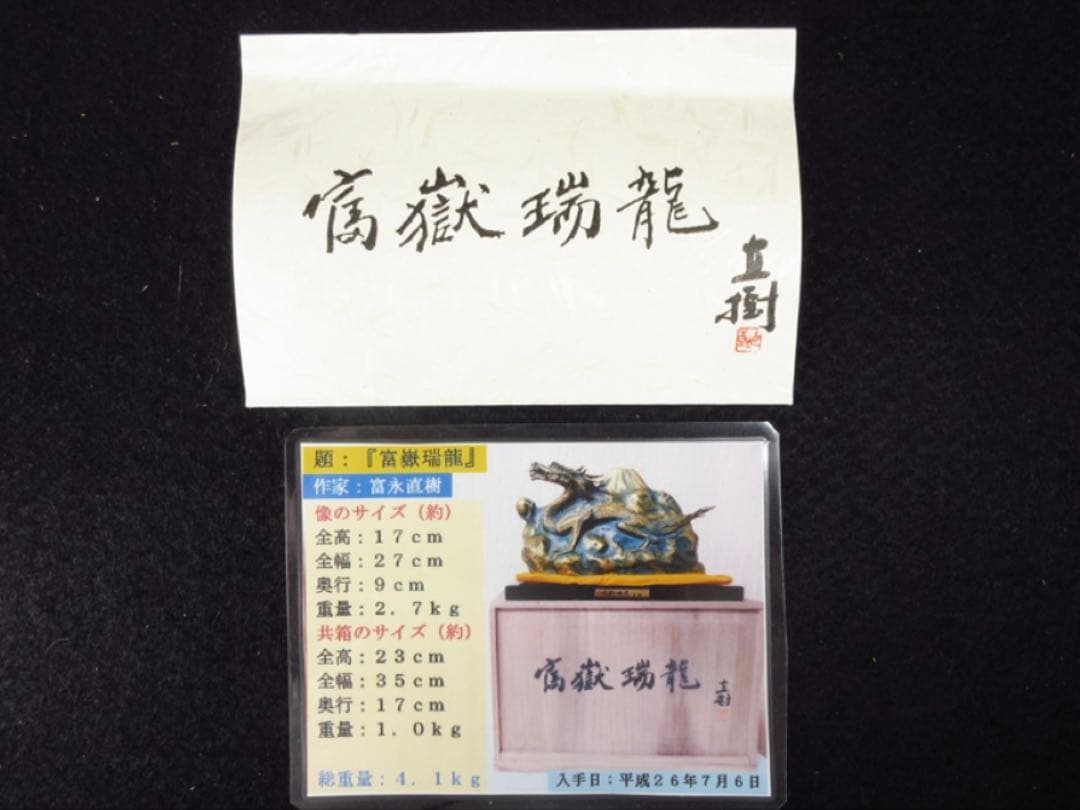 富嶽瑞龍
直樹
題：『富嶽瑞龍』
作家：富永直樹
像のサイズ（約）
全高：１７ｃｍ
全幅：２７ｃｍ
奥行：９ｃｍ
重量：２．７ｋｇ
共箱のサイズ（約）
全高：２３ｃｍ
全幅：３５ｃｍ
奥行：１７ｃｍ
重量：１．０ｋｇ
総重量：４．１ｋｇ
富嶽瑞龍
直樹
入手日：平成２６年７月６日